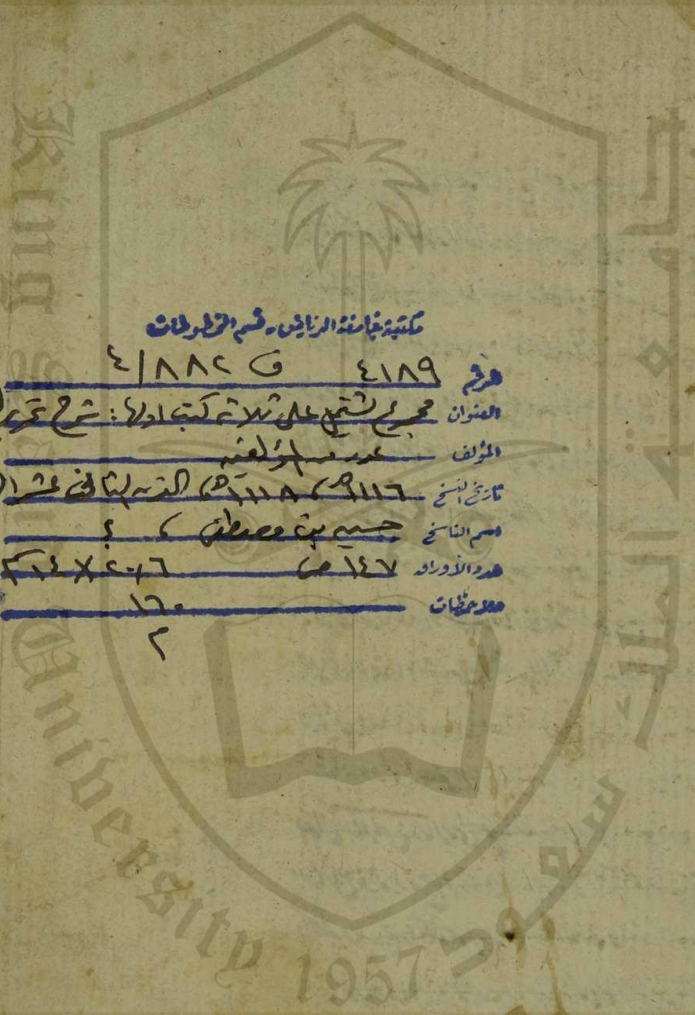 مكتبة جامعة الرياض - قسم المخطوطات
الرقم ٤١٨٩ ف ٨٨٢ / ٤
العنوان مجموع يشتمل على ثلاثة كتب اولها: شرح تحرير
المؤلف عدد من المؤلفين
تاريخ النسخ ١١١٦هـ، ١١١٨هـ، القرن الثاني عشر
اسم الناسخ حسين بن مصطفى، ؟
عدد الأوراق ١٤٧ ص ١٤ × ٢٠٫٦
ملاحظات ١٦٠
م
King Saud University 1957
جامعة الملك سعود